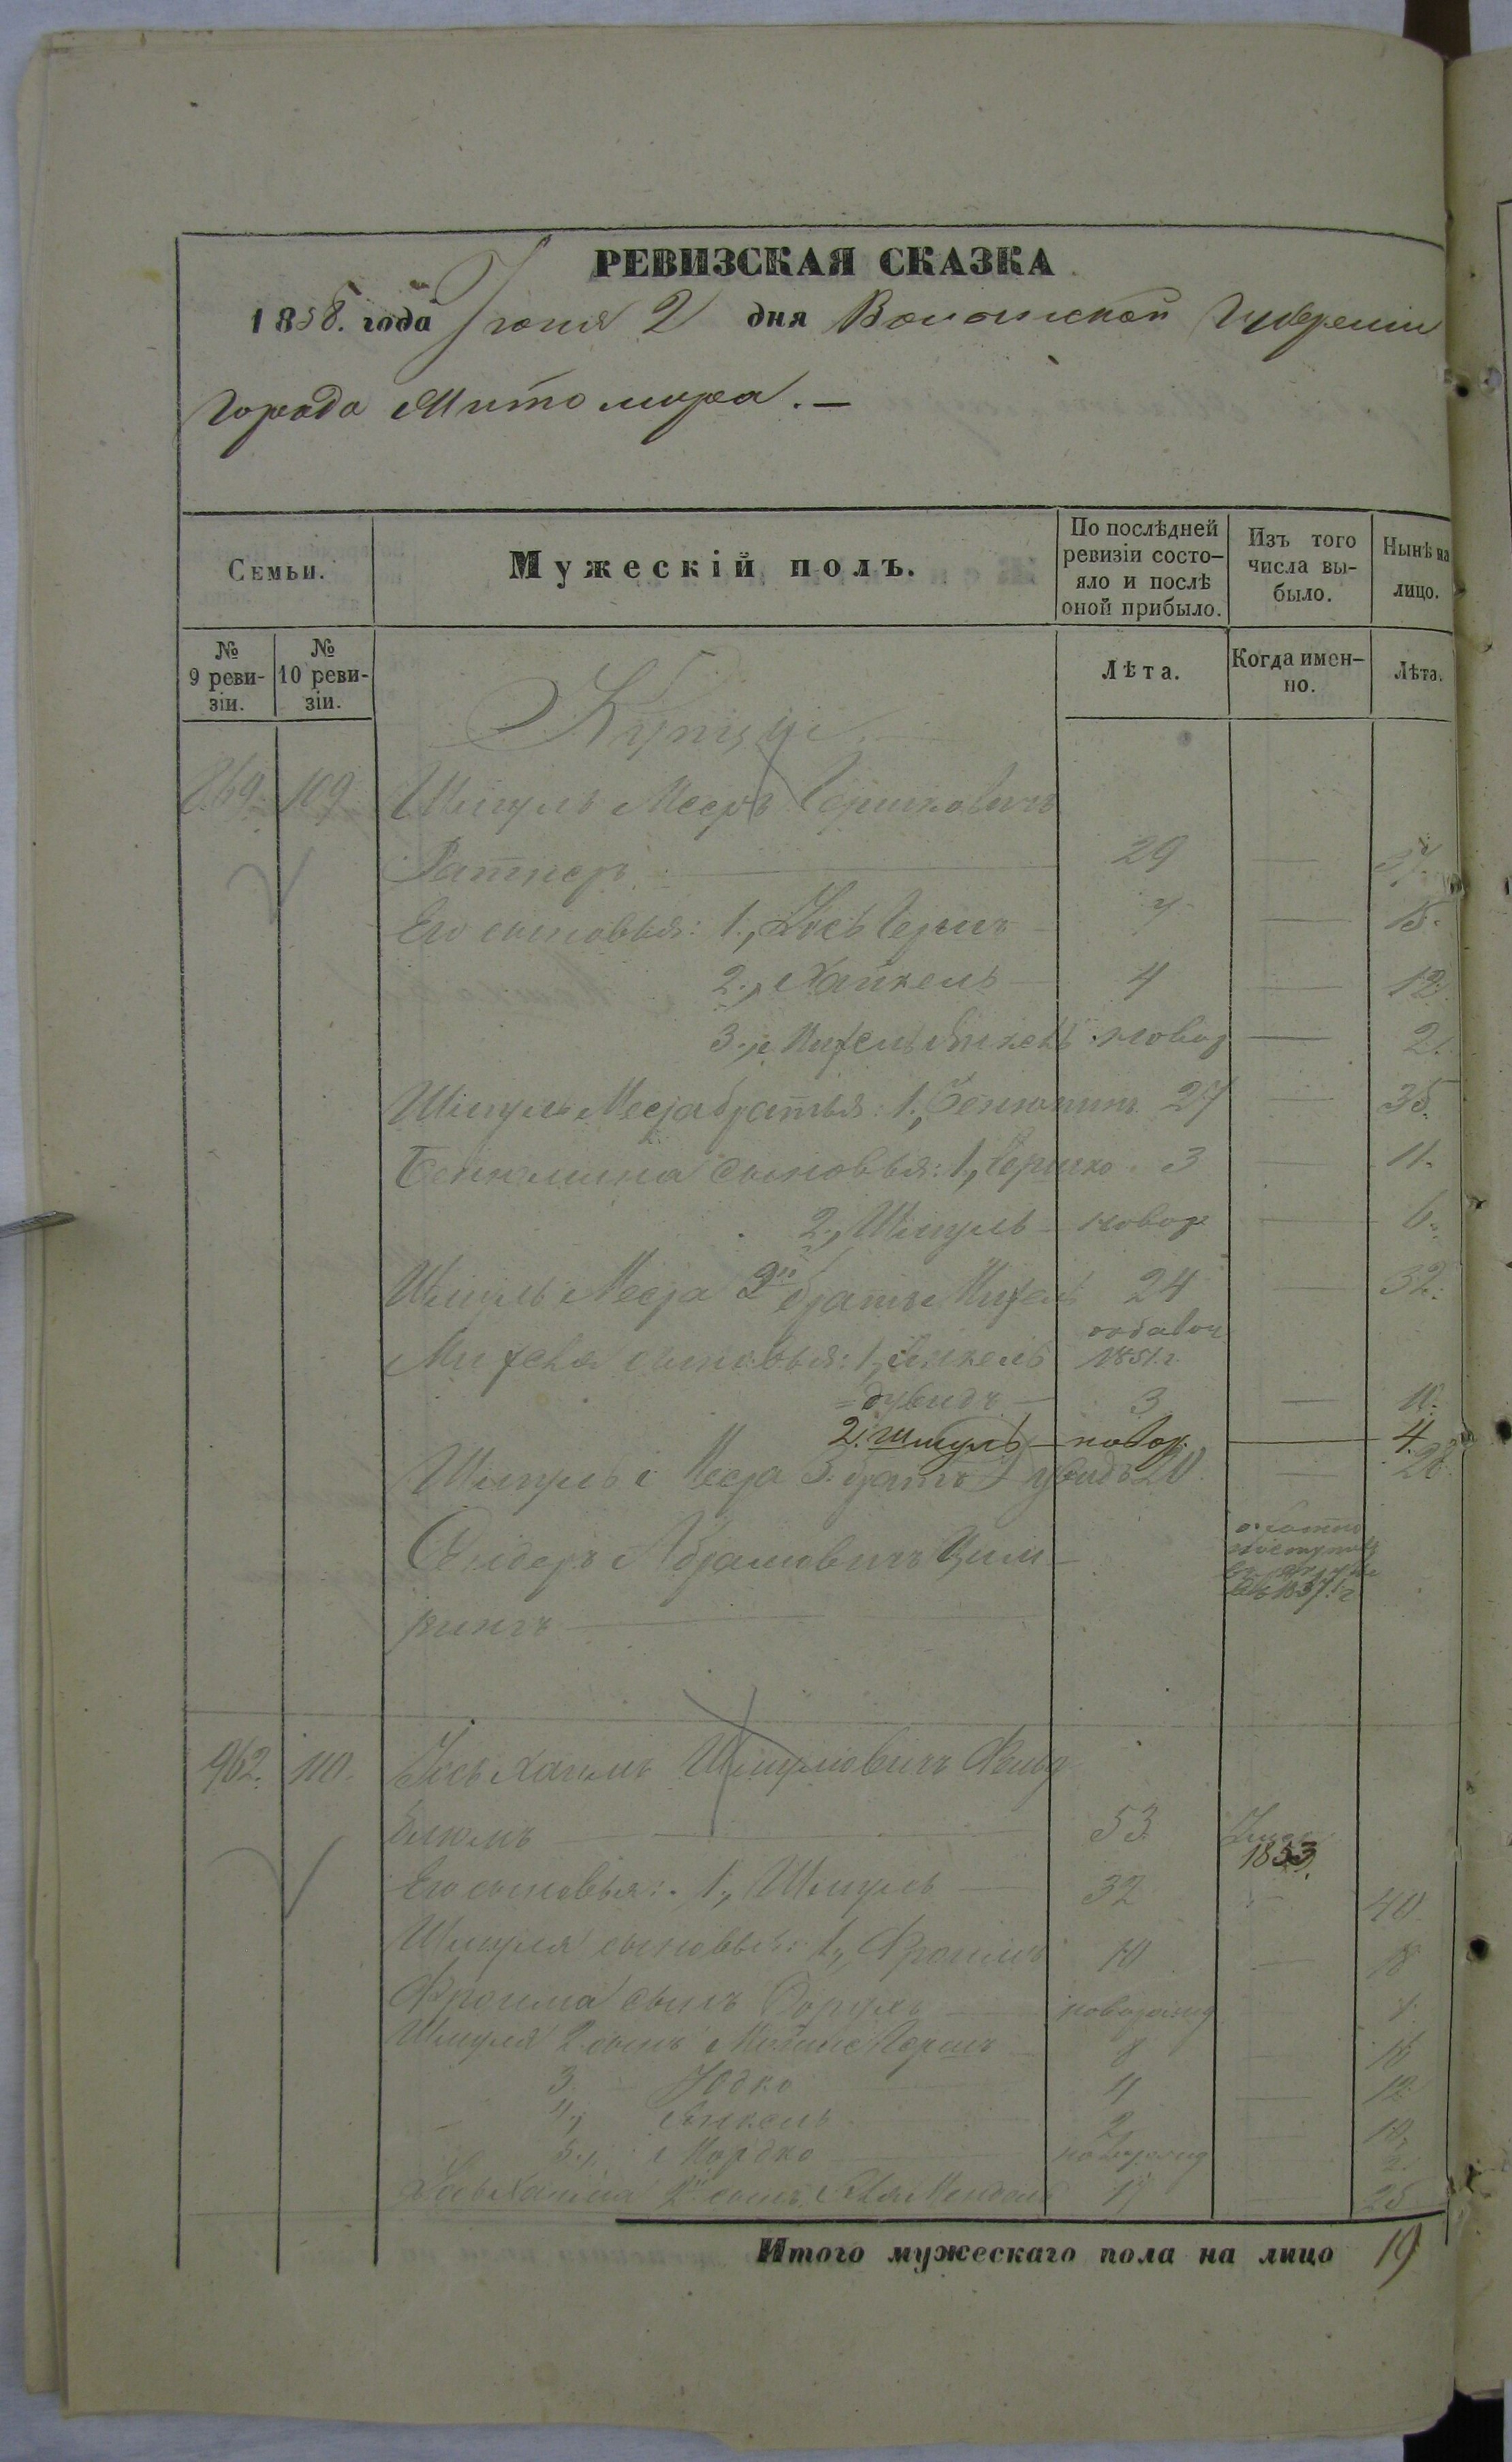 РЕВИЗСКАЯ СКАЗКА
1858. года Іюня 2 дня Волынской Губерніи
города Житомира. —
Семьи.
Мужескій полъ.
По послѣдней ревизіи состо- яло и послѣ оной прибыло.
Изъ того числа вы- было.
Нынѣ на лицо.
№ 9 реви- зіи.
№ 10 реви- зіи.
Лѣта.
Когда имен- но.
Лѣта.
Купцы
869. 109 Шмуль Мееръ Гершковичъ
Ратнеръ — 29 —
Его сыновья: 1., Іось Гершъ 7 — 15.
2., Хайкель — 4 — 12.
3., Михель Янкель новор — 2.
Шмуль Меера братья: 1., Бенюминъ 27 — 35.
Бенюмина сыновья: 1, Гершко 3 — 11.
2., Шмуль — новор — 6.
Шмуль Меера 2й братъ Михель 24 — 32.
Михеля сыновья: 1, Янкель 1851. г.
= Дувидъ — 3 —
2. Шмуль — новор. — 4.
Шмуль Меера 3. братъ Дувидъ 20. — 28.
Сендеръ Абрамовичъ Цим-
1857. г
962. 110. Іось Хаимъ Шмулёвичъ
53.
1853.
Его сыновья: 1., Шмуль — 32 — 40
Шмуля сыновья: 1., Фроимъ 10 — 18
Фроима сынъ — новорожд 1.
Шмуля 2. сынъ Гершъ — 8 — 16
3. — Юдко 4 — 12.
4., Янкель 2 — 10.
5., Мордко — новорожд 2.
Іось Хаима 2й сынъ Мендель 17 — 25
Итого мужескаго пола на лицо 19